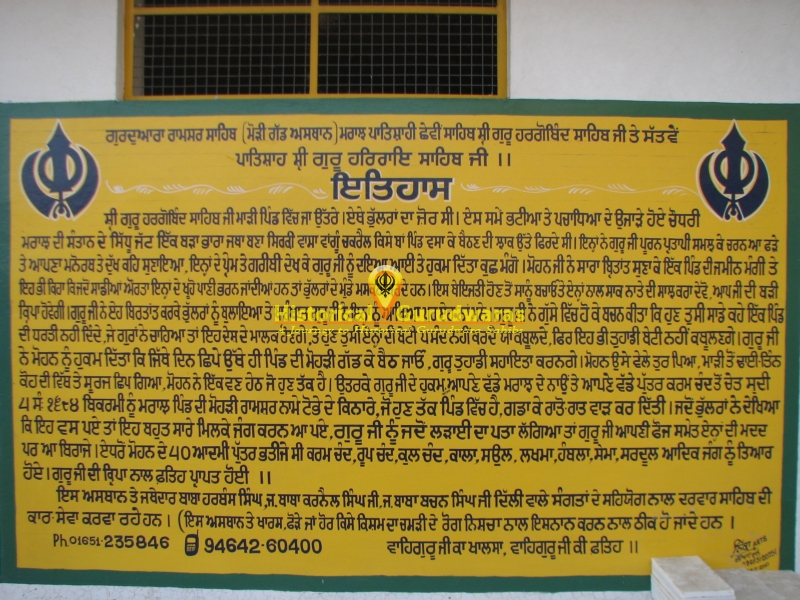 ਗੁਰਦੁਆਰਾ ਰਾਮਸਰ ਸਾਹਿਬ (ਮੋੜੀ ਗੱਡ ਅਸਥਾਨ) ਮਰਾਝ ਪਾਤਿਸ਼ਾਹੀ ਛੇਵੀਂ ਸਾਹਿਬ ਸ਼੍ਰੀ ਗੁਰੂ ਹਰਗੋਬਿੰਦ ਸਾਹਿਬ ਜੀ ਤੇ ਸੱਤਵੇਂ
ਪਾਤਿਸ਼ਾਹ ਸ਼੍ਰੀ ਗੁਰੂ ਹਰਿਰਾਇ ਸਾਹਿਬ ਜੀ ।।
ਇਤਿਹਾਸ
ਸ਼੍ਰੀ ਗੁਰੂ ਹਰਗੋਬਿੰਦ ਸਾਹਿਬ ਜੀ ਮਾੜੀ ਪਿੰਡ ਵਿੱਚ ਜਾ ਉਤਰੇ। ਏਥੇ ਭੁੱਲਰਾਂ ਦਾ ਜੋਰ ਸੀ। ਏਸ ਸਮੇਂ ਭਟੀਆ ਤੇ ਪਚਾਧਿਆ ਦੇ ਉਜਾੜੇ ਹੋਏ ਚੋਧਰੀ
ਮਰਾਝ ਦੀ ਸੰਤਾਨ ਦੇ ਸਿੱਧੂ ਜੱਟ ਇੱਕ ਬੜਾ ਭਾਰਾ ਜਥਾ ਬਣਾ ਸਿਰਕੀ ਵਾਸਾ ਵਾਂਗੂੰ ਚਕਰੈਲ ਕਿਸੇ ਥਾਂ ਪਿੰਡ ਵਸਾ ਕੇ ਬੈਠਣ ਦੀ ਝਾਕ ਉਤੇ ਫਿਰਦੇ ਸੀ। ਇਨ੍ਹਾਂ ਨੇ ਗੁਰੂ ਜੀ ਪੂਰਨ ਪ੍ਰਤਾਪੀ ਸਮਝ ਕੇ ਚਰਨ ਆ ਫੜੇ
ਤੇ ਆਪਣਾ ਮਨੋਰਥ ਤੇ ਦੁੱਖ ਕਹਿ ਸੁਣਾਇਆ, ਇਨ੍ਹਾਂ ਦੇ ਪ੍ਰੇਮ ਤੇ ਗਰੀਬੀ ਦੇਖ ਕੇ ਗੁਰੂ ਜੀ ਨੂੰ ਦਇਆ ਆਈ ਤੇ ਹੁਕਮ ਦਿੱਤਾ ਕੁਛ ਮੰਗੋ। ਮੋਹਨ ਜੀ ਨੇ ਸਾਰਾ ਬ੍ਰਿਤਾਂਤ ਸੁਣਾ ਕੇ ਇੱਕ ਪਿੰਡ ਦੀ ਜਮੀਨ ਮੰਗੀ ਤੇ
ਇਹ ਭੀ ਕਿਹਾ ਕਿ ਜਦੋਂ ਸਾਡੀਆ ਔਰਤਾ ਇਨ੍ਹਾਂ ਦੇ ਖੂਹੋ ਪਾਣੀ ਭਰਨ ਜਾਂਦੀਆਂ ਹਨ ਤਾਂ ਭੁੱਲਰਾਂ ਦੇ ਮੁੰਡੇ ਹਨ। ਇਸ ਬੇਇਜਤੀ ਹੋਣ ਤੋਂ ਸਾਨੂੰ ਬਚਾਓ ਤੇ ਏਨਾਂ ਨਾਲ ਸਾਕ ਨਾਤੇ ਦੀ ਸਾਂਝ ਕਰਾ ਦੇਵੋ, ਆਪ ਜੀ ਦੀ ਬੜੀ
ਕ੍ਰਿਪਾ ਹੋਵੇਗੀ। ਗੁਰੂ ਜੀ ਨੇ ਇਹ ਬ੍ਰਿਤਾਂਤ ਕਰਕੇ ਭੁੱਲਰਾਂ ਨੂੰ ਬੁਲਾਇਆ ਤੇ ਨੇ ਗੁੱਸੇ ਵਿੱਚ ਹੋ ਕੇ ਬਚਨ ਕੀਤਾ ਕਿ ਹੁਣ ਤੁਸੀ ਸਾਡੇ ਕਹੇ ਇੱਕ ਪਿੰਡ
ਦੀ ਧਰਤੀ ਨਹੀਂ ਦਿੰਦੇ, ਜੇ ਗੁਰਾਂ ਨੇ ਚਾਹਿਆ ਤਾਂ ਇਹ ਦੇਸ਼ ਦੇ ਮਾਲਕ ਹੋਣਗੇ, ਤੇ ਹੁਣ ਤੁਸੀ ਏਨਾਂ ਦੀ ਬੇਟੀ ਪਸੰਦ ਨਹੀਂ ਕਰਦੇ ਯਾ ਕਬੂਲਦੇ, ਫਿਰ ਇਹ ਭੀ ਤੁਹਾਡੀ ਬੇਟੀ ਨਹੀਂ ਕਬੂਲਣਗੇ। ਗੁਰੂ ਜੀ
ਨੇ ਮੋਹਨ ਨੂੰ ਹੁਕਮ ਦਿੱਤਾ ਕਿ ਜਿੱਥੇ ਦਿਨ ਛਿਪੇ ਉੱਥੇ ਹੀ ਪਿੰਡ ਦੀ ਮੋਹੜੀ ਗੱਡ ਕੇ ਬੈਠ ਜਾਓ, ਗੁਰੂ ਤੁਹਾਡੀ ਸਹਾਇਤਾ ਕਰਨਗੇ। ਮੋਹਨ ਉਸੇ ਵੇਲੇ ਤੁਰ ਪਿਆ, ਮਾੜੀ ਤੋਂ ਢਾਈ-ਤਿੰਨ
ਕੋਹ ਦੀ ਵਿੱਥ ਤੇ ਸੂਰਜ ਛਿਪ ਗਿਆ, ਮੋਹਨ ਨੇ ਇੱਕ ਵਣ ਹੇਠ ਜੋ ਹੁਣ ਤੱਕ ਹੈ। ਉਤਰਕੇ ਗੁਰੂ ਜੀ ਦੇ ਹੁਕਮ, ਆਪਣੇ ਵੱਡੇ ਮਰਾਝ ਦੇ ਨਾਉਂ ਤੇ ਆਪਣੇ ਵੱਡੇ ਪੁੱਤਰ ਕਰਮ ਚੰਦ ਤੋਂ ਚੇਤ ਸੁਦੀ
੫ ਸੰ: ੧੬੮੪ ਬਿਕਰਮੀ ਨੂੰ ਮਰਾਝ ਪਿੰਡ ਦੀ ਮੋਹੜੀ ਰਾਮਸਰ ਨਾਮੇ ਟੋਭੇ ਦੇ ਕਿਨਾਰੇ, ਜੋ ਹੁਣ ਤੱਕ ਪਿੰਡ ਵਿੱਚ ਹੈ, ਗਡਾ ਕੇ ਰਾਤੋ-ਰਾਤ ਵਾੜ ਕਰ ਦਿੱਤੀ। ਜਦੋਂ ਭੁੱਲਰਾਂ ਨੇ ਦੇਖਿਆ
ਕਿ ਇਹ ਵਸ ਪਏ ਤਾਂ ਇਹ ਬਹੁਤ ਸਾਰੇ ਮਿਲਕੇ ਜੰਗ ਕਰਨ ਆ ਪਏ, ਗੁਰੂ ਜੀ ਨੂੰ ਜਦੋਂ ਲੜਾਈ ਦਾ ਪਤਾ ਲੱਗਿਆ ਤਾਂ ਗੁਰੂ ਜੀ ਆਪਣੀ ਫੌਜ ਸਮੇਤ ਏਨਾਂ ਦੀ ਮਦਦ
ਪਰ ਆ ਬਿਰਾਜੇ। ਏਧਰੋਂ ਮੋਹਨ ਦੇ ੪੦ ਆਦਮੀ ਪੁੱਤਰ ਭਤੀਜੇ ਸੀ ਕਰਮ ਚੰਦ, ਰੂਪ ਚੰਦ, ਕੁਲ ਚੰਦ, ਕਾਲਾ, ਸਉਲ, ਲਖਮਾ, ਹੰਬਲਾ, ਸੇਮਾ, ਸਰਦੂਲ ਆਦਿਕ ਜੰਗ ਨੂੰ ਤਿਆਰ
ਹੋਏ। ਗੁਰੂ ਜੀ ਦੀ ਕ੍ਰਿਪਾ ਨਾਲ ਫਤਿਹ ਪ੍ਰਾਪਤ ਹੋਈ ।।
ਇਸ ਅਸਥਾਨ ਤੇ ਜਥੇਦਾਰ ਬਾਬਾ ਹਰਬੰਸ ਸਿੰਘ, ਜ. ਬਾਬਾ ਕਰਨੈਲ ਸਿੰਘ ਜੀ, ਜ. ਬਾਬਾ ਬਚਨ ਸਿੰਘ ਜੀ ਦਿੱਲੀ ਵਾਲੇ ਸੰਗਤਾਂ ਦੇ ਸਹਿਯੋਗ ਨਾਲ ਦਰਬਾਰ ਸਾਹਿਬ ਦੀ
ਕਾਰ-ਸੇਵਾ ਕਰਵਾ ਰਹੇ ਹਨ। (ਇਸ ਅਸਥਾਨ ਤੇ ਖਾਰਸ਼, ਫੋੜੇ ਜਾਂ ਹੋਰ ਕਿਸੇ ਕਿਸਮ ਦਾ ਚਮੜੀ ਦੇ ਰੋਗ ਨਿਸਚਾ ਨਾਲ ਇਸ਼ਨਾਨ ਕਰਨ ਨਾਲ ਠੀਕ ਹੋ ਜਾਂਦੇ ਹਨ ।
Ph. 01651-235846 94642-60400 ਵਾਹਿਗੁਰੂ ਜੀ ਕਾ ਖਾਲਸਾ, ਵਾਹਿਗੁਰੂ ਜੀ ਕੀ ਫਤਿਹ ।।
Historical Gurudwaras